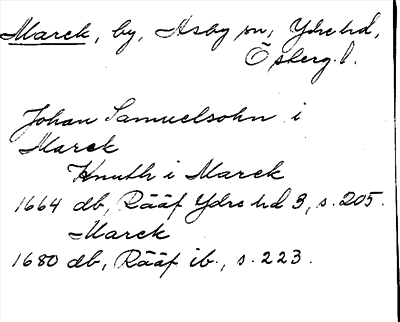 Marek, by, Asby sn, Ydre hd,
Östergl.
Johan Samuelsohn i
Marek
Knuth i Marek
1664 db, Rääf Ydre hd 3, s. 205.
Marek
1680 db, Rääf ib., s. 223.